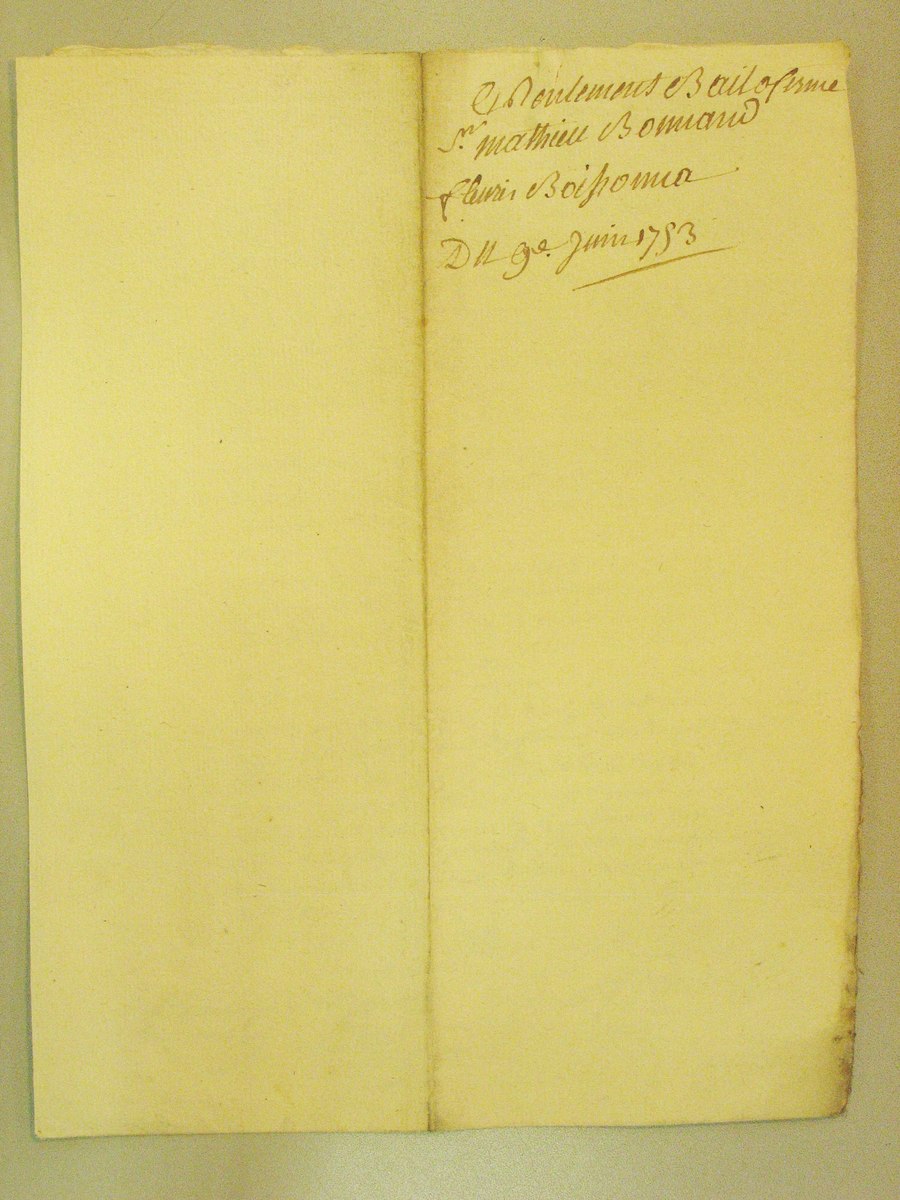 Roulement Bail aferme
Sr. mathieu Bonnand
fleuris Boissonna
Du 9e. Juin 1753